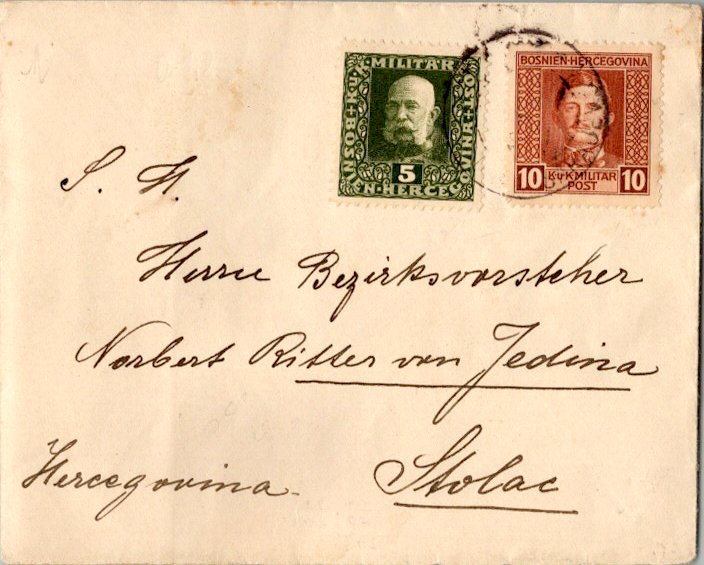 K.u.K. MILITÄR POST
BOSNIEN-HERCEGOVINA
5
BOSNIEN-HERCEGOVINA
10 K.u.K. MILITÄR 10
POST
S. H.
Herrn Bezirksvorsteher
Norbert Ritter von Jedina
Stolac
Hercegovina